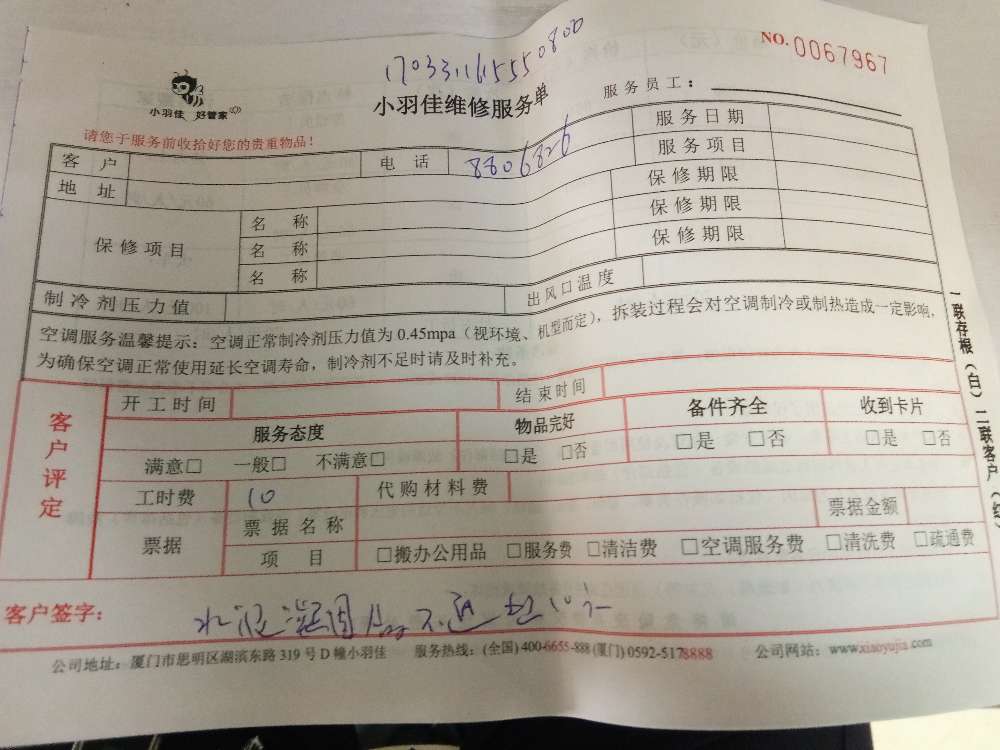 NO. 0067967
小羽佳 好管家
小羽佳维修服务单
服务员工：
请您于服务前收拾好您的贵重物品！
客户 电话 8806826 服务日期
地址 服务项目
保修项目 名称 保修期限
名称 保修期限
名称 保修期限
制冷剂压力值 出风口温度
空调服务温馨提示：空调正常制冷剂压力值为 0.45mpa（视环境、机型而定），拆装过程会对空调制冷或制热造成一定影响，
为确保空调正常使用延长空调寿命，制冷剂不足时请及时补充。
客户评定
开工时间 结束时间
服务态度 物品完好 备件齐全 收到卡片
满意□ 一般□ 不满意□ □是 □否 □是 □否 □是 □否
工时费 10 代购材料费
票据 票据名称 票据金额
项目 □搬办公用品 □服务费 □清洁费 □空调服务费 □清洗费 □疏通费
客户签字：
水泥凝固 不通
公司地址：厦门市思明区湖滨东路 319 号 D 幢小羽佳 服务热线：(全国) 400-6655-888 (厦门) 0592-5178888 公司网站：www.xiaoyujia.com
一联存根（白）二联客户（红